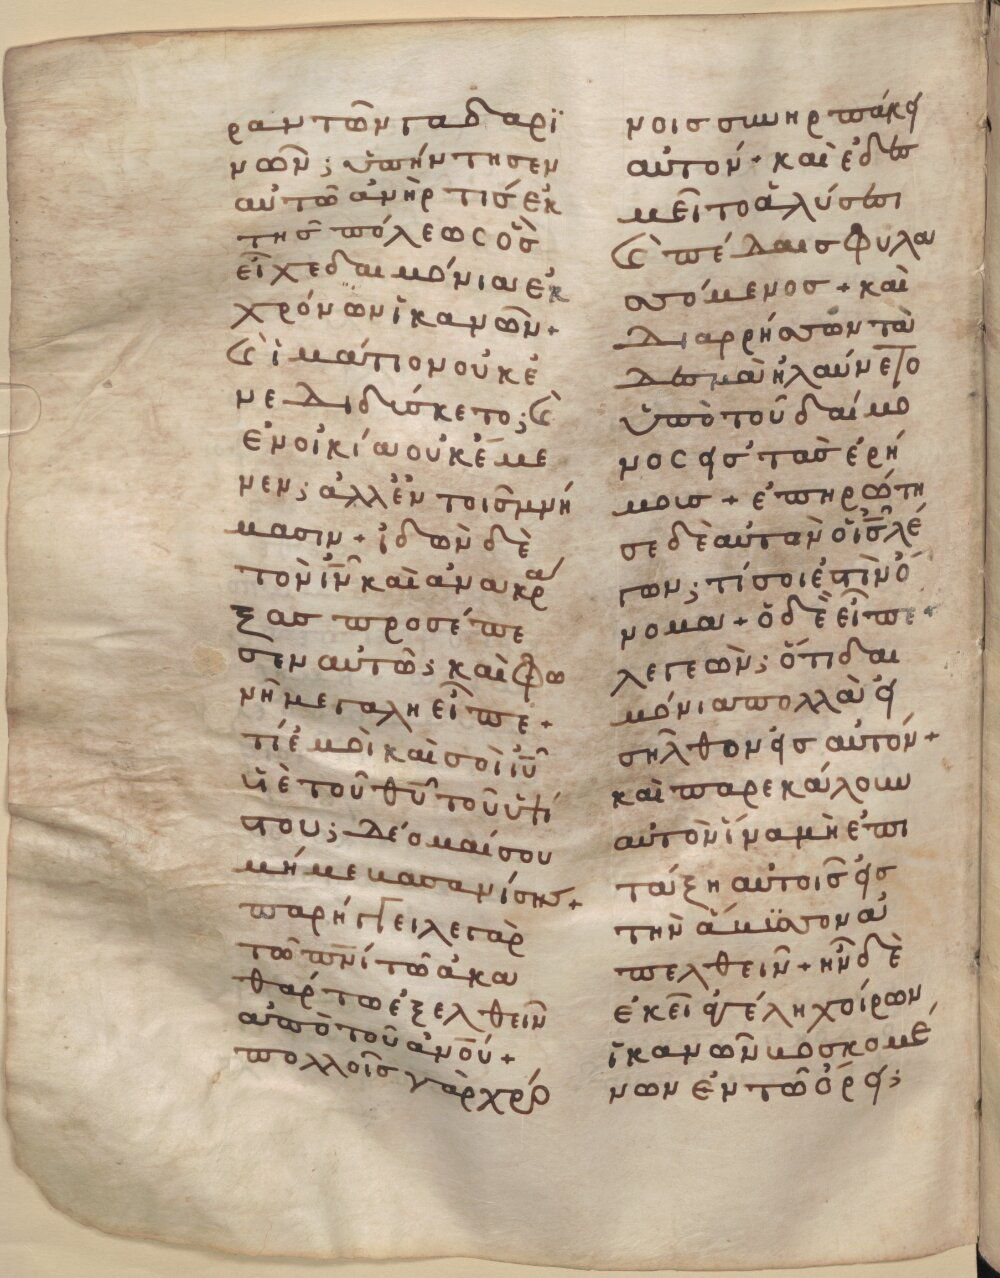 ραν τῶν γαδαρι
νῶν; ὑπήντησεν
αὐτῶ ἀνήρ τισ ἐκ
τῆσ πόλεωσ ὃσ
εἶχε δαιμόνια ἐκ
χρόνων ἱκανῶν+
ϗ ἱμάτιον οὐκ ἐ
νεδιδύσκετο; ϗ
ἐν οἰκία οὐκ ἔμε
νεν; ἀλλ ἐν τοῖσ μνή
μασιν+ ἰδὼν δὲ
τὸν ἰν̅ καὶ ἀνακρά
ξασ προσέπε
σεν αὐτῶ; καὶ φω
νῆ μεγάλη εἶπε+
τί ἐμοὶ καὶ σοὶ ιυ̅
υἱὲ τοῦ θυ̅ τοῦ ὑψί
στου; δέομαί σου
μή με βασανίσησ+
παρήγγειλε γὰρ
τῶ πνι̅ τῶ ἀκα
θάρτω ἐξελθεῖν
ἀπὸ τοῦ ἀνου̅+
πολλοῖσ γὰρ χρό
νοισ συνηρπάκει
αὐτόν+ καὶ ἐδε
μεῖτο ἁλύσεσι
ϗ πέδαισ φυλα
σσόμενοσ+ καὶ
διαρρήσσων τὰ
δεσμὰ ἠλαύνετο
ὑπὸ τοῦ δαίμο
νοσ εἰσ τὰσ ἐρή
μουσ+ ἐπηρώτη
σε δὲ αὐτὸν ὁ ισ̅ λέ
γων; τί σοι ἐστὶν ὄ
νομα+ ὁ δὲ εἶπε+
λεγεών; ὅτι δαι
μόνια πολλὰ εἰ
σῆλθον εἰσ αὐτόν+
καὶ παρεκάλουν
αὐτὸν ἵνα μὴ ἐπι
τάξη αὐτοῖσ εἰσ
τὴν ἄβυσσον ἀ
πελθεῖν+ ἦν δὲ
ἐκεῖ ἀγέλη χοίρων
ἱκανῶν βοσκομέ
νων ἐν τῶ ὄρει;